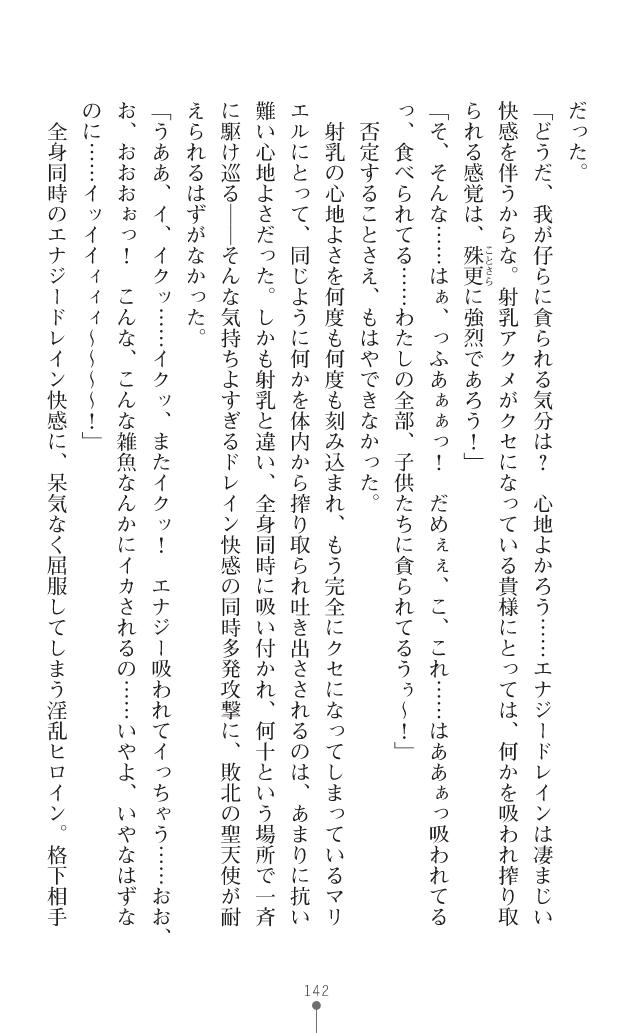 だった。
「どうだ、我が仔らに貪られる気分は？　心地よかろう……エナジードレインは凄まじい
快感を伴うからな。射乳アクメがクセになっている貴様にとっては、何かを吸われ搾り取
られる感覚は、殊更ことさらに強烈であろう！」
「そ、そんな……はぁ、っふあぁぁっ！　だめぇぇ、こ、これ……はああぁっ吸われてる
っ、食べられてる……わたしの全部、子供たちに貪られてるうぅ～！」
　否定することさえ、もはやできなかった。
　射乳の心地よさを何度も何度も刻み込まれ、もう完全にクセになってしまっているマリ
エルにとって、同じように何かを体内から搾り取られ吐き出さされるのは、あまりに抗い
難い心地よさだった。しかも射乳と違い、全身同時に吸い付かれ、何十という場所で一斉
に駆け巡る――そんな気持ちよすぎるドレイン快感の同時多発攻撃に、敗北の聖天使が耐
えられるはずがなかった。
「うああ、イ、イクッ……イクッ、またイクッ！　エナジー吸われてイっちゃう……おお、
お、おおおぉっ！　こんな、こんな雑魚なんかにイカされるの……いやよ、いやなはずな
のに……イッイイィィィ～～～～！」
　全身同時のエナジードレイン快感に、呆気なく屈服してしまう淫乱ヒロイン。格下相手
142